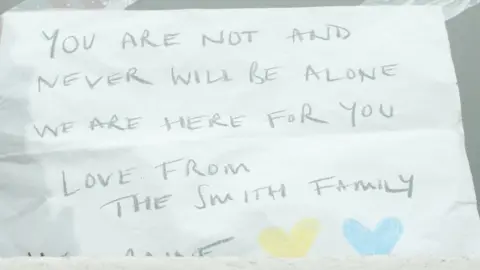 YOU ARE NOT AND
NEVER WILL BE ALONE
WE ARE HERE FOR YOU
LOVE FROM
THE SMITH FAMILY